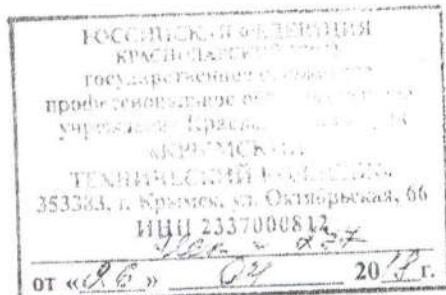 РОССИЙСКАЯ ФЕДЕРАЦИЯ
КРАСНОДАРСКИЙ КРАЙ
государственное
профессиональное
учреждение Краснодарского края
«КРЫМСКИЙ
ТЕХНИЧЕСКИЙ КОЛЛЕДЖ»
353383, г. Крымск, ул. Октябрьская, 66
ИНН 2337000812
от «26» 04 20 г.